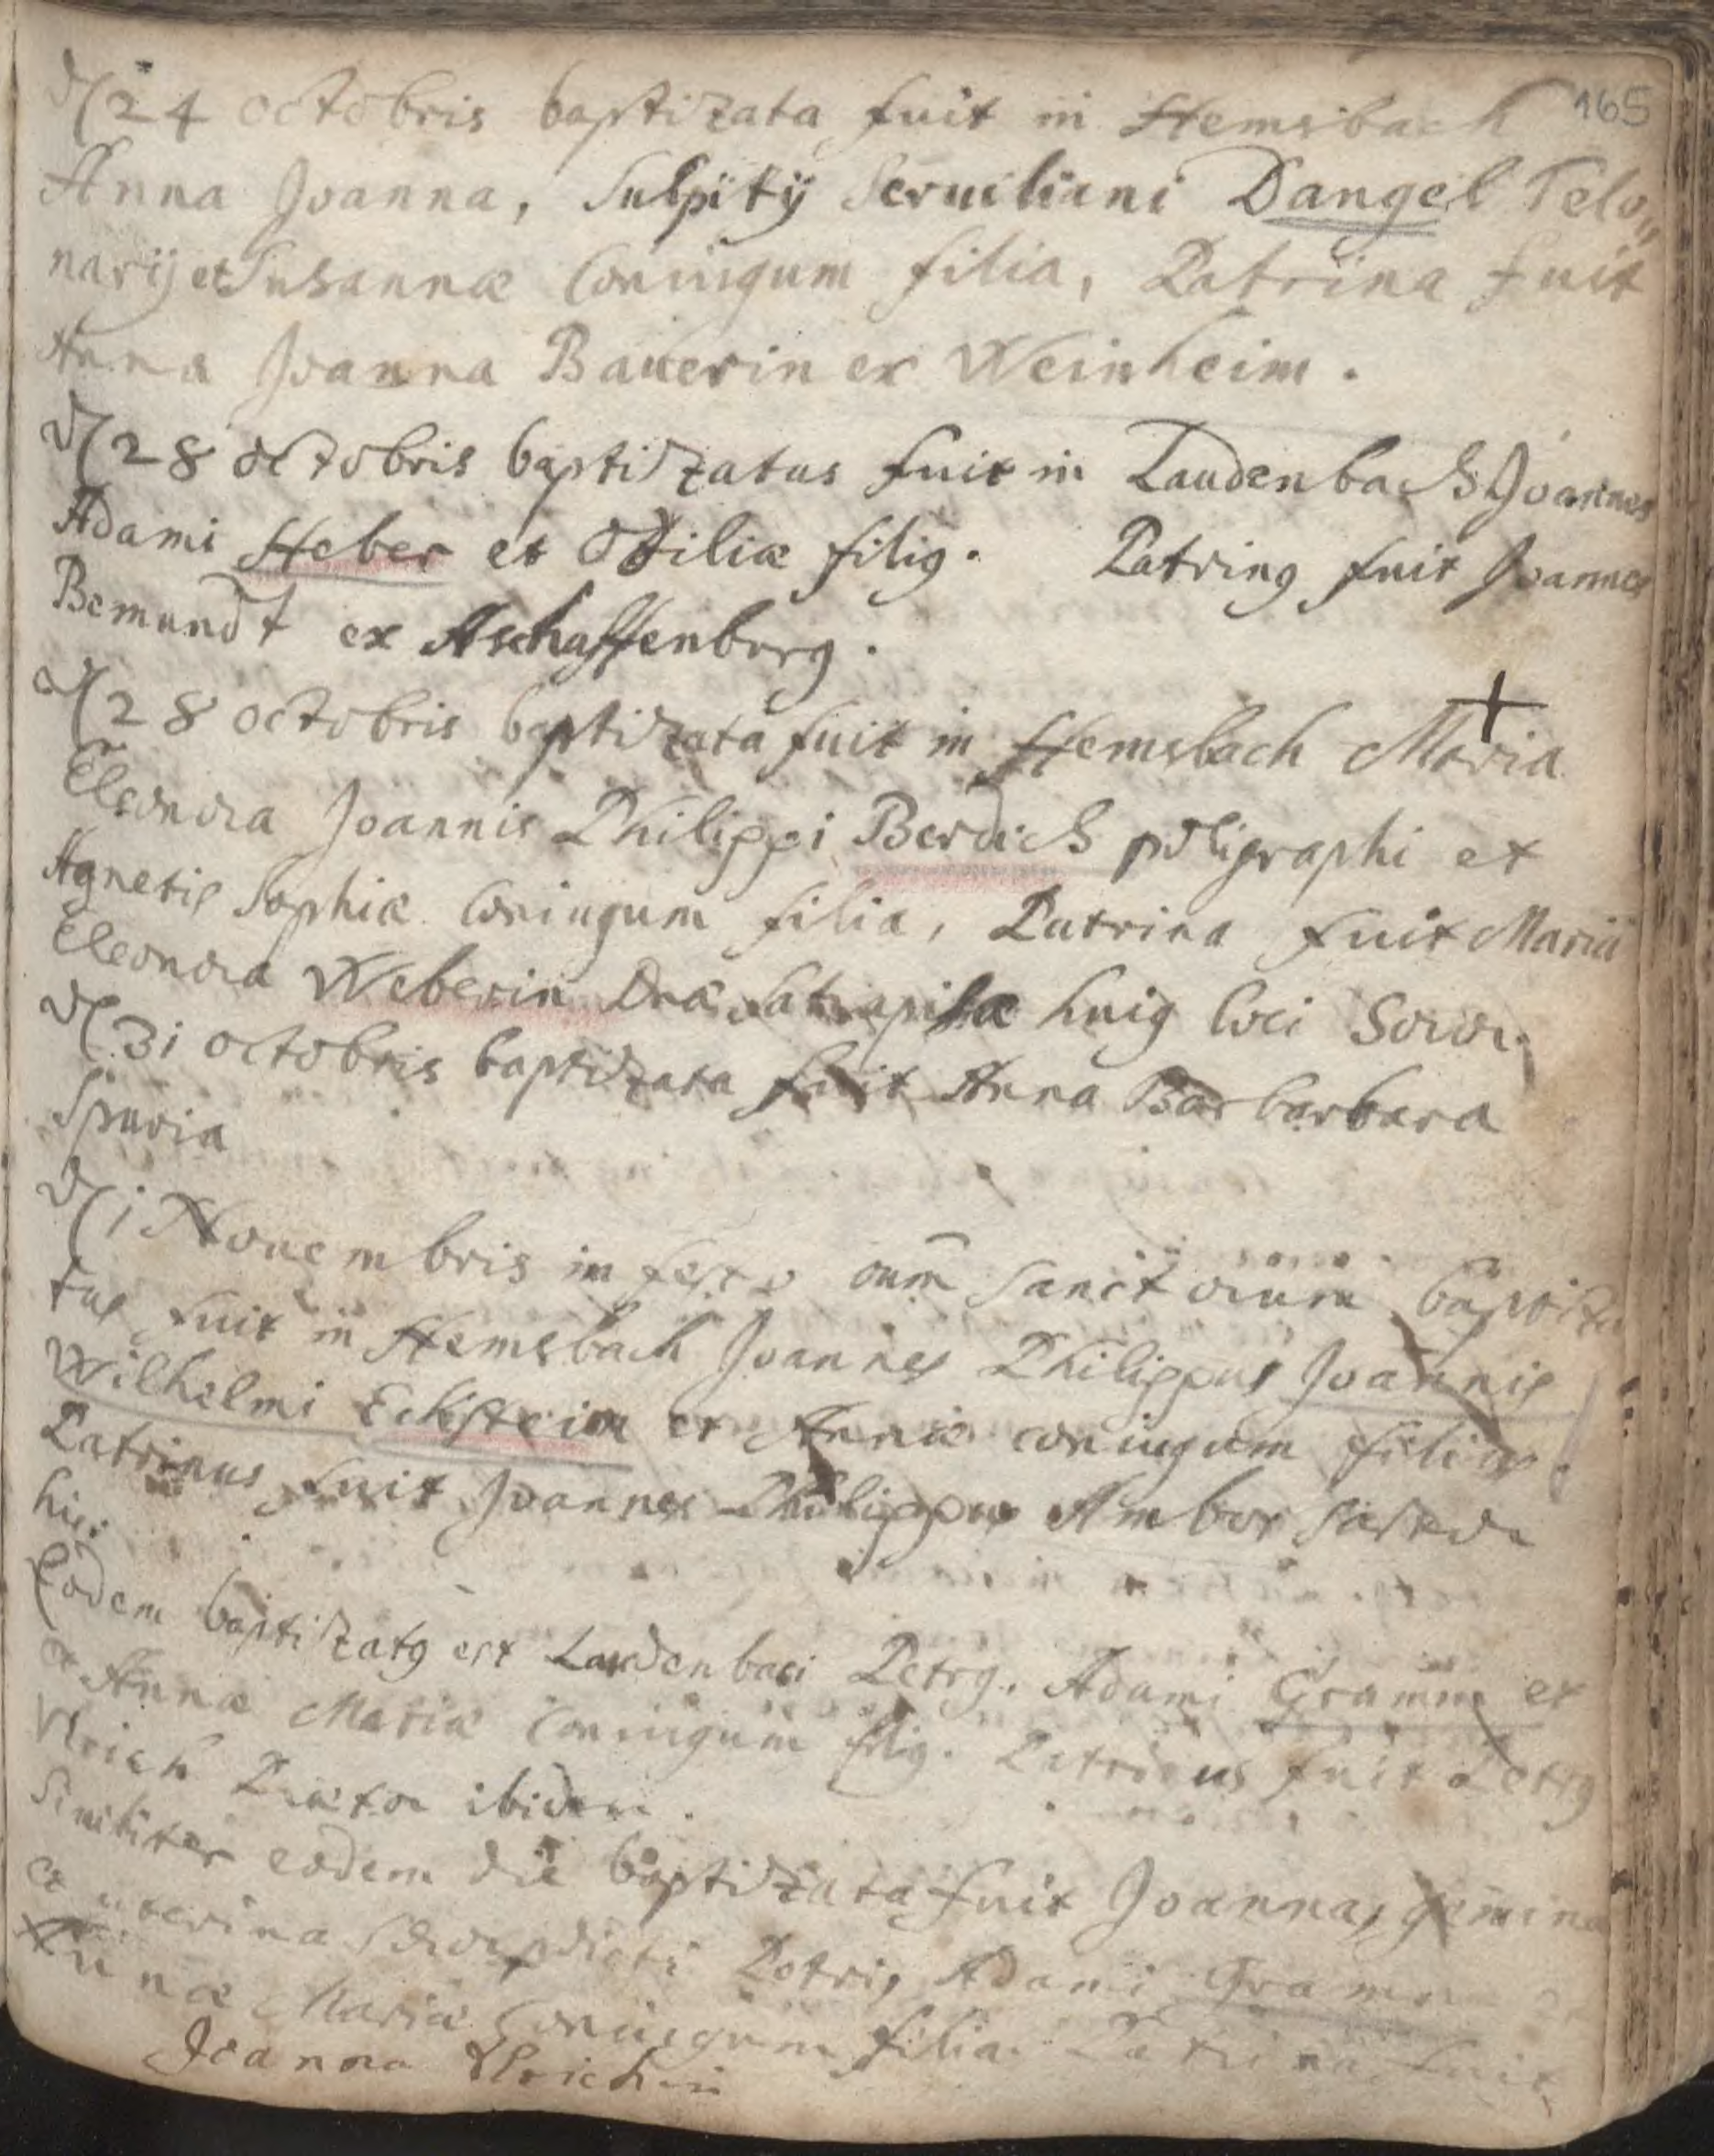 165
d 24 octobris baptizata fuit in Hemsbach
Anna Joanna, Sulpitij Seruiliani Dangel Telo„
narij et Susannæ Coniugum filia, Patrina fuit
Anna Joanna Bauerin ex Weinheim.
d 28 octobris baptizatus fuit in Laudenbach Joannes
Adami Heber et Ottiliæ filig. Patring fuit Joannes
Bemundt ex Aschaffenburg.
d 28 octobris baptizata fuit in Hemsbach Maria
Eleonora Joannis Philippi Berdich poligraphi et
Agnetis Sophiæ Coniugum filia, Patrina fuit Maria
Eleonora Weberin Dnæ Satrapissæ huig loci Soror.
d 31 octobris baptizata fuit Anna Barbarbara
Spuria
d i Nouembris in festo oum̄ Sanctorum baptiza
tus fuit in Hemsbach Joannes Philippus Joannis
Wilhelmi Eckstein et Annæ coniugum filius.
Patrinus fuit Joannes Philippus Ambos
hic.
Eodem baptizatg est Laudenbaci Petrg. Adami Gramm et
et Annæ Mariæ Coniugum filig. Patrinus fuit Petrg
Vlrich Prætor ibidem.
Similiter eodem die baptizata fuit Joanna, gemina
et uterina Soror Petri, Adami Gramm
Annæ Mariæ Coniugum filia. Patrina fuit
Joanna Vlrichin